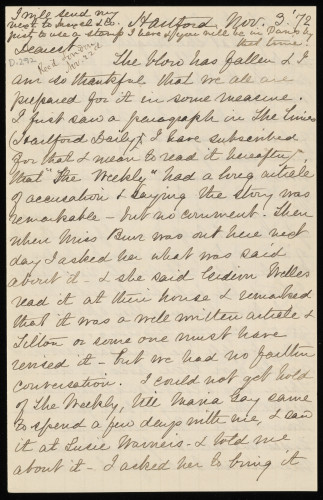 I will send my
next to
just to use a stamp I have if you will be in
Hartford Nov. 3. '72
that time.
Dearest
D-292
Rec'd London
Nov. 22d
The blow has fallen & I
am so thankful that we all are
prepared for it in some measure.
I just saw a paragraph in The Times
(Hartford Daily, I have subscribed
for that & mean to read it hereafter)
that "The Weekly" had a long article
of accusation & saying the story was
remarkable - but no comment. Then
when Miss Burr was out here next
day I asked her what was said
about it - & she said Gideon Welles
read it at their house & remarked
that it was a well written article &
Tilton or some one must have
revised it - but we had no farther
conversation. I could not get hold
of The Weekly, till Maria Gay came
to spend a few days with me, & saw
it at Susie Warners - & told me
about it - I asked her to bring it